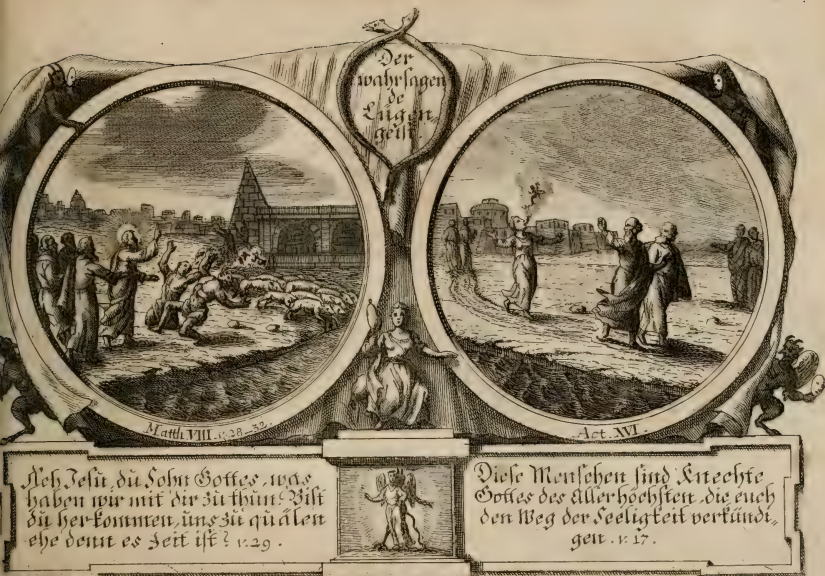 Der
wahrsagen
de
Lügen
geist
Matth VIII. v. 28-32.
Act. XVI.
Ach Jesu, du Sohn Gottes, was
haben wir mit dir zu thun. Bist
du her kommen, uns zu quälen
ehe denn es Zeit ist? v. 29.
Diese Menschen sind Knechte
Gottes des Allerhöchsten. die euch
den Weg der Seeligkeit verkündi„
gen. v. 17.